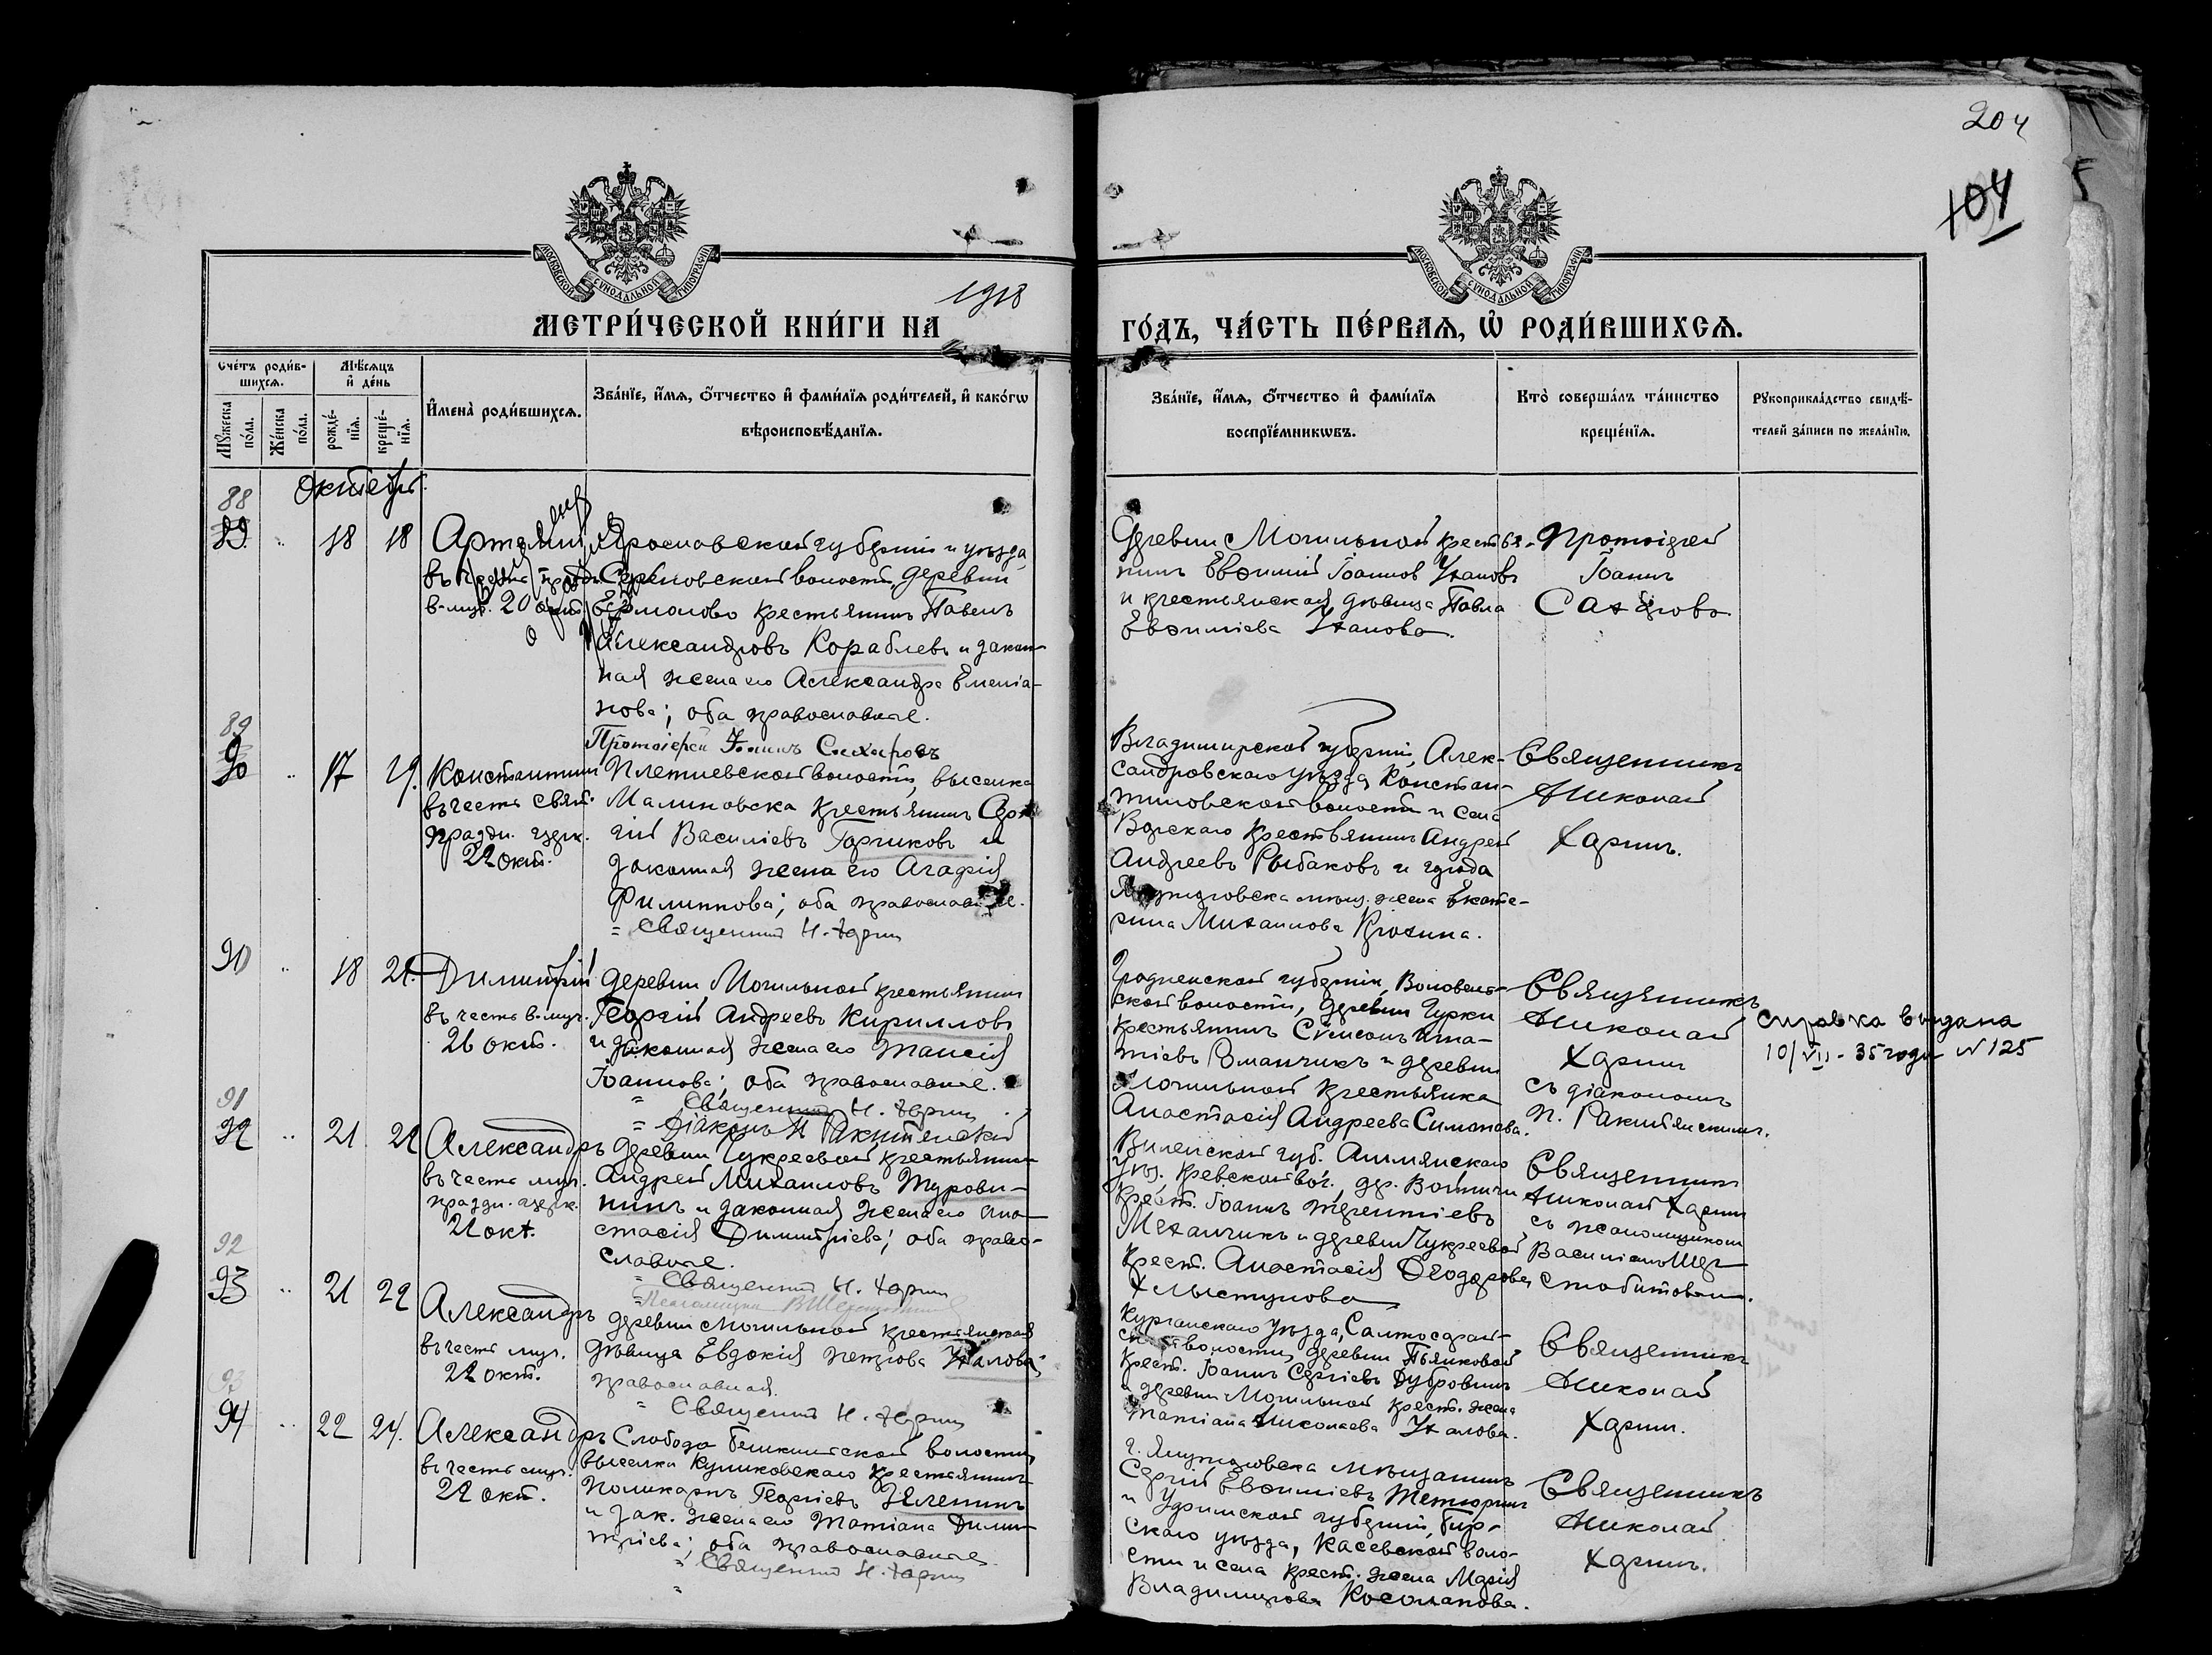 204
104
МОСКОВСКОЙ СѴНОДАЛЬНОЙ ТИПОГРАФІИ
МОСКОВСКОЙ СѴНОДАЛЬНОЙ ТИПОГРАФІИ
МЕТРИ́ЧЕСКОЙ КНИ́ГИ НА 1918
ГО́ДЪ, ЧА́СТЬ ПЕ́РВАЯ, Ѡ РОДИ́ВШИХСЯ.
Сче́тъ роди́в-
шихся.
Мѣ́сяцъ
и де́нь
Мꙋ́жеска
по́ла.
Же́нска
по́ла.
рожде́-
нїя.
креще́-
нїя.
И҆мена̀ роди́вшихся.
Зва́нїе, и҆́мя, ѻ҆́тчество и҆ фами́лїя роди́телей, и҆ како́гѡ
вѣроисповѣ́данїя.
Зва́нїе, и҆́мя, ѻ҆́тчество и҆ фами́лїя
воспрїе́мникѡвъ.
Кто̀ соверша́лъ та́инство
креще́нїя.
Рꙋкоприкла́дство свидѣ́-
телей за́писи по жела́нїю.
Октябрь.
88
89. 18 18
Артемий
въ честь
в-муч. 20 окт.
Ярославской губерніи и уѣзда,
волости, деревни
Ермолово крестьянинъ Павелъ
Александровъ Кораблевъ и закон-
ная жена его Александра Емелиа-
нова; оба православные.
Протоіерей Іоаннъ Сахаровъ
Деревни Могильной крестья-
нинъ Евѳимій Іоанновъ Ухаловъ
и крестьянская дѣвица Павла
Евѳиміева Ухалова.
Протоіерей
Іоаннъ
Сахаровъ
89
90 17 19.
Константинъ
въ честь свят.
праздн. церк.
22 окт.
Плетневской волости, выселка
Малиновска крестьянинъ Сер-
гій Василіевъ Горчиковъ и
законная жена его Агафія
Филиппова; оба православные.
Священникъ Н. Харинъ
Владимірской губерніи, Алек-
сандровскаго уѣзда, Констан-
тиновской волости и села
крестьянинъ Андрей
Андреевъ Рыбаковъ и города
Ялуторовска мѣщ. жена Екате-
рина Михаилова Крохина.
Священникъ
Николай
Харинъ.
90 18 21.
Димитрій
въ честь в-муч.
26 окт.
деревни Могильной крестьянинъ
Георгій Андреевъ Кирилловъ
и законная жена его Таисія
Іоаннова; оба православные.
Священникъ Н. Харинъ
Діаконъ П Ракитянскій
Гродненской губерніи,
ской волости, деревни Гурки
крестьянинъ Сѵмеонъ Игна-
тіевъ Романчикъ и деревни
Могильной крестьянка
Анастасія Андреева Симонова.
Священникъ
Николай
Харинъ
съ діакономъ
П. Ракитянскимъ.
Справка выдана
10/VII - 35 года № 125
91
92 21 22
Александръ
въ честь муч.
праздн. церк.
22 окт.
деревни Чукреевой крестьянинъ
Андрей Михаиловъ Турови-
нинъ и законная жена его Ана-
стасія Димитріева; оба право-
славные.
Священникъ Н. Харинъ
Виленской губ. Ашмянскаго
уѣз. Кревской вол. дер. Войтичи
крест. Іоаннъ Терентіевъ
Механчикъ и деревни Чукреевой
крест. Анастасія Ѳеодорова
Хлыстунова
Священникъ
Николай Харинъ
съ псаломщикомъ
Василіемъ Шер-
стобитовымъ.
92
93 21 22
Александръ
въ честь муч.
22 окт.
деревни Могильной крестьянская
дѣвица Евдокія Петрова Ухалова;
православная.
Священникъ Н. Харинъ
Курганскаго уѣзда, Салтосарай-
ской волости, деревни Пьянковой
крест. Іоаннъ Сергіевъ Дубровинъ
и деревни Могильной крест. жена
Татіана Николаева Ухалова.
Священникъ
Николай
Харинъ.
93
94 22 24.
Александръ
въ честь муч.
22 окт.
Слободо-Бешкильской волости,
выселка Куликовскаго крестьянинъ
Поликарпъ Георгіевъ Зеленинъ
и зак. жена его Татіана Дими-
тріева; оба православные.
Священникъ Н. Харинъ
г. Ялуторовска мѣщанинъ
Сергій Евѳиміевъ Тетюринъ
и Уфимской губерніи, Бир-
скаго уѣзда, Касевской воло-
сти и села крест. жена Марія
Владимирова Косолапова.
Священникъ
Николай
Харинъ.